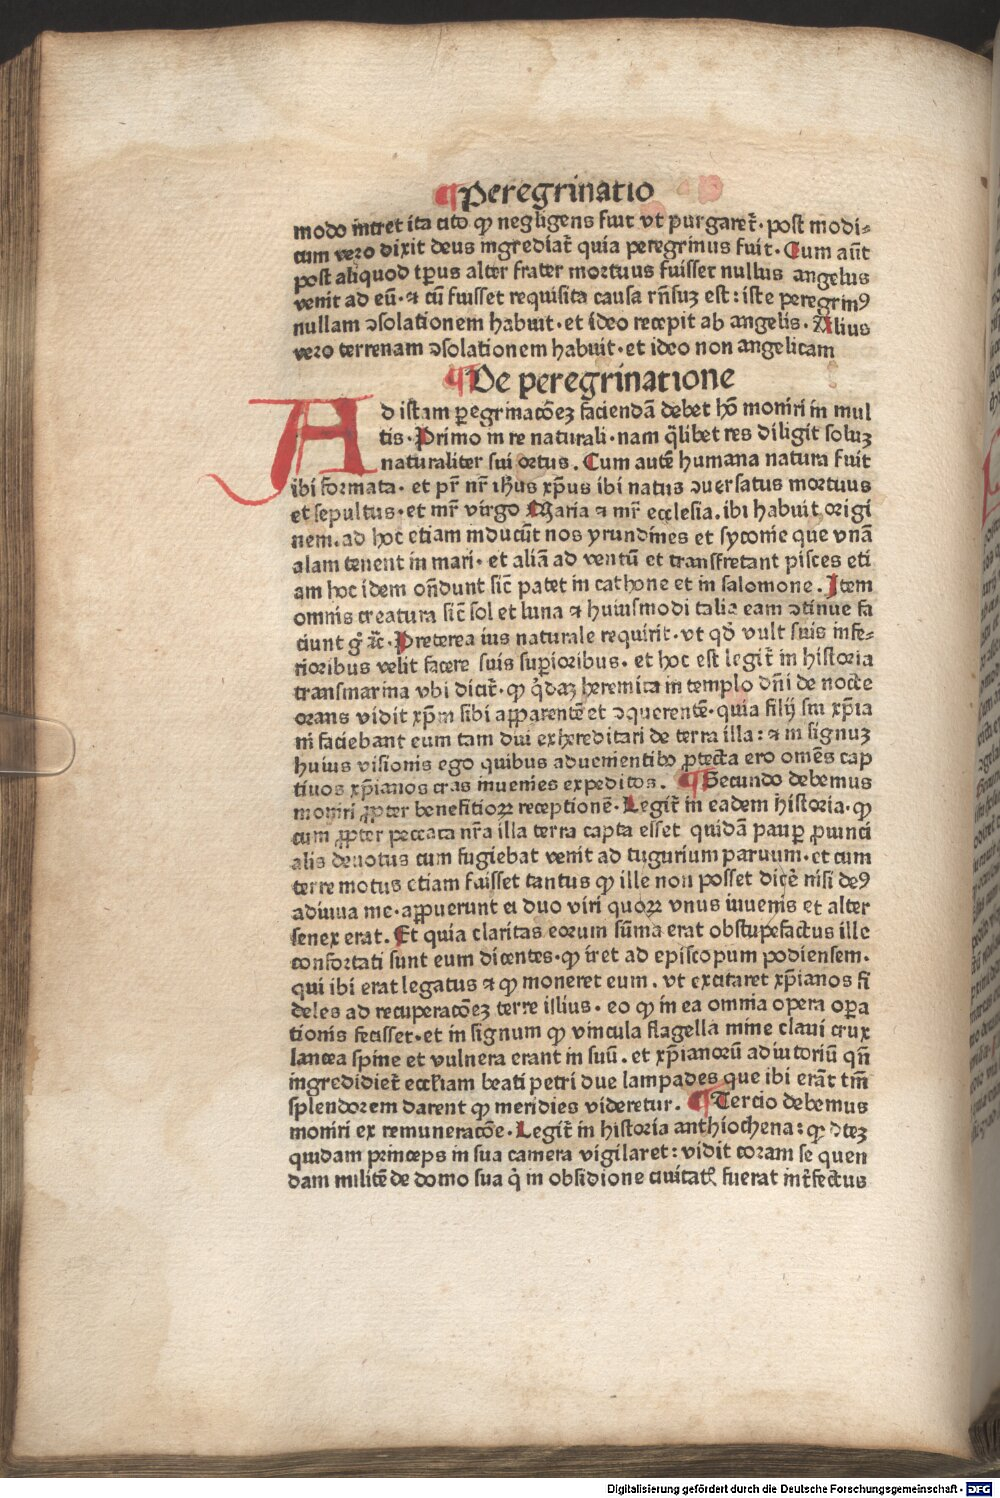 ¶Peregrinatio
modo intret ita cito ꝙ negligens fuit vt purgaret᷑· post modi⸗
cum vero dixit deus ingrediat᷑ quia peregrinus fuit· Cum aūt
post aliquod tp̄us alter frater mortuus fuisset nullus angelus
venit ad eū· ⁊ cū fuisset requisita causa rn̄suꝫ est: iste peregrinꝰ
nullam ↄsolationem habuit· et ideo recepit ab angelis· Alius
vero terrenam ↄsolationem habuit· et ideo non angelicam
¶De peregrinatione
Ad istam ꝑegrinacōeꝫ faciendā debet hō moniri in mul
tis· Primo in re naturali· nam q̄libet res diligit soluꝫ
naturaliter sui ortus. Cum autē humana natura fuit
ibi formata· et pr̄ nr̄ ihūs xp̄us ibi natus ↄuersatus mortuus
et sepultus· et mr̄ virgo Maria ⁊ mr̄ ecclesia. ibi habuit origi
nem. ad hoc etiam inducūt nos yrundines et syconie que vnā
alam tenent in mari· et aliā ad ventū et transfretant pisces eti
am hoc idem on̄dunt sic̄ patet in cathone et in salomone. Item
omnis creatura sic̄ sol et luna ⁊ huiusmodi talia eam ↄtinue fa
ciunt gͦ ⁊c̄· Preterea ius naturale requirit· vt qd̄ vult suis infe⸗
rioribus velit facere suis suꝑioribus. et hoc est legit᷑ in historia
transmarina vbi dicit᷑· ꝙ q̇daꝫ heremita in templo dn̄i de nocte
orans vidit xp̄m sibi apparentē et ↄquerentē· quia filij sui xp̄ia
ni faciebant eum tam diu exhereditari de terra illa: ⁊ in signuꝫ
huius visionis ego quibus aduenientibꝰ ꝓtecta ero omēs cap
tiuos xp̄ianos cras inuenies expeditos. ¶Secundo debemus
moniri ꝓpter beneficioꝝ receptionē· Legit᷑ in eadem historia· ꝙ
cum ꝓpter peccata nr̄a illa terra capta esset quidā pauꝑ ꝓuinci
alis deuotus cum fugiebat venit ad tugurium paruum· et cum
terre motus etiam fuisset tantus ꝙ ille non posset dicē nisi deꝰ
adiuua me· appuerunt ei duo viri quoꝝ vnus iuuenis et alter
senex erat. Et quia claritas eorum sūma erat obstupefactus ille
confortati sunt eum dicentes· ꝙ iret ad episcopum podiensem.
qui ibi erat legatus ⁊ ꝙ moneret eum. vt excitaret xp̄ianos fi
deles ad recuperacōeꝫ terre illius. eo ꝙ in ea omnia opera oꝑa
tionis fecisset· et in signum ꝙ vincula flagella mine claui crux
lancea spine et vulnera erant in suū. et xp̄ianorū adiutoriū qn̄
ingredidier̄t eccl̄iam beati petri due lampades que ibi erāt tm̄
splendorem darent ꝙ meridies videretur. ¶Tercio debemus
moniri ex remuneracōe· Legit᷑ in historia anthiochena: ꝙ dteꝫ
quidam princeps in sua camera vigilaret: vidit coram se quen
dam militē de domo sua q̇ in obsidione ciuitatꝭ fuerat int̄fectus
Digitalisierung gefördert durch die Deutsche Forschungsgemeinschaft · DFG